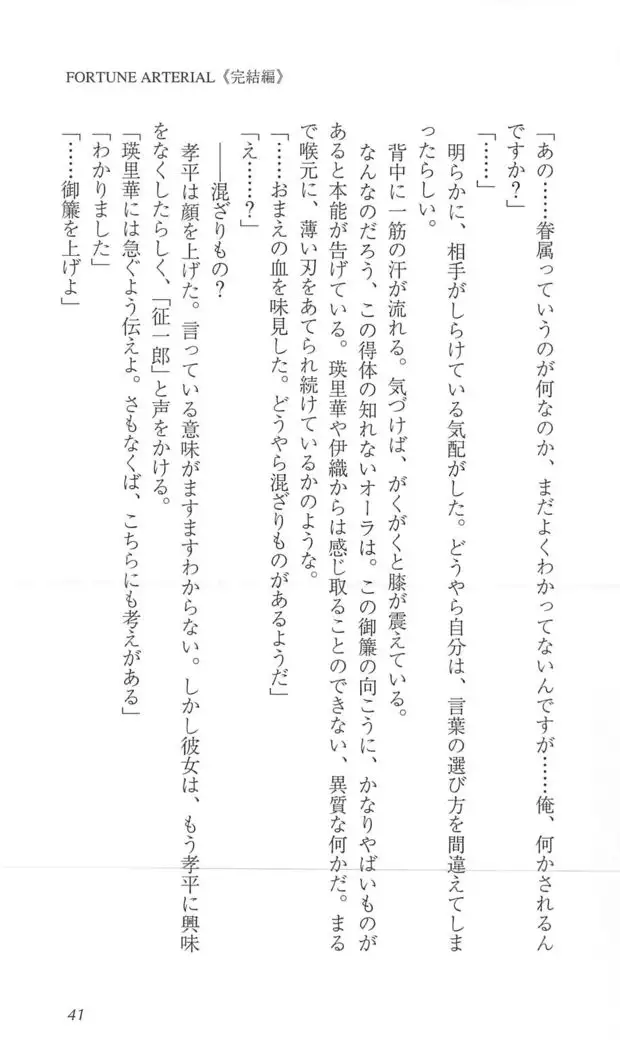 FORTUNE ARTERIAL《完結編》
「あの……眷属っていうのが何なのか、まだよくわかってないんですが……俺、何かされるん
ですか？」
「……」
明らかに、相手がしらけている気配がした。どうやら自分は、言葉の選び方を間違えてしま
ったらしい。
背中に一筋の汗が流れる。気づけば、がくがくと膝が震えている。
なんなのだろう、この得体の知れないオーラは。この御簾の向こうに、かなりやばいものが
あると本能が告げている。瑛里華や伊織からは感じ取ることのできない、異質な何かだ。まる
で喉元に、薄い刃をあてられ続けているかのような。
「……おまえの血を味見した。どうやら混ざりものがあるようだ」
「え……？」
――混ざりもの？
孝平は顔を上げた。言っている意味がますますわからない。しかし彼女は、もう孝平に興味
をなくしたらしく、「征一郎」と声をかける。
「瑛里華には急ぐよう伝えよ。さもなくば、こちらにも考えがある」
「わかりました」
「……御簾を上げよ」
41